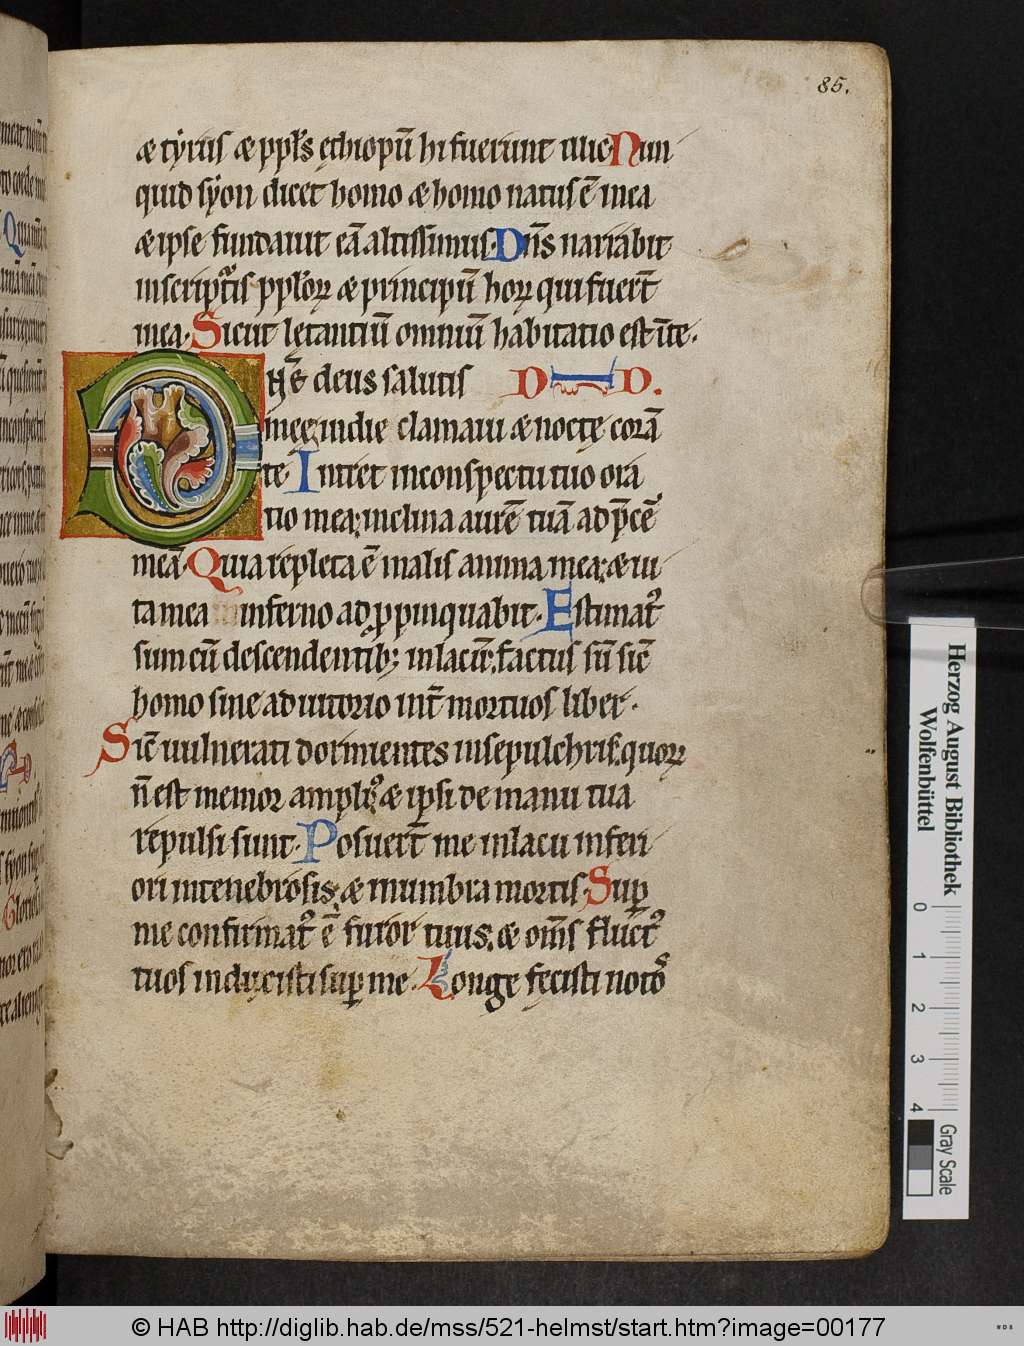 85.
& tẏrus & ppl's ęthiopū hi fuerunt illic. Nun
quid sẏon dicet homo & homo natus ē in ea
& ipse fundauit eā altissimus. Dn̄s narrabit
in scriptur̄is ppl'orꝝ & principū horꝝ qui fuerт̄
in ea. Sicut letantiū omniū habitatio est in te.
Dn̄e deus salutis
meę in die clamaui & noctę corā
te Intret in conspectu tuo ora
tio mea; inclina aurē tuā ad p̄cē
meā. Quia repleta ē malis anima mea; & ui
ta mea inferno adꝓpinquabit. Estimat᷒
sum cū descendentib; in lacū; factus sū sic̄
homo sine adiutorio int̄ mortuos liber.
Sic̄ uulnerati dormientes in sepulchris quorꝝ
n̄ est memor ampli᷒ & ipsi de manu tua
repulsi sunt. Posuer̄t me in lacu inferi
ori in tenebrosis; & in umbra mortis Suꝑ
me confirmat᷒ ē furor tuus; & om̄s fluct᷒
tuos induxisti suꝑ me. Longe fęcisti noto
Herzog August Bibliothek
Wolfenbüttel
0 1 2 3 4
Gray Scale
© HAB http://diglib.hab.de/mss/521-helmst/start.htm?image=00177